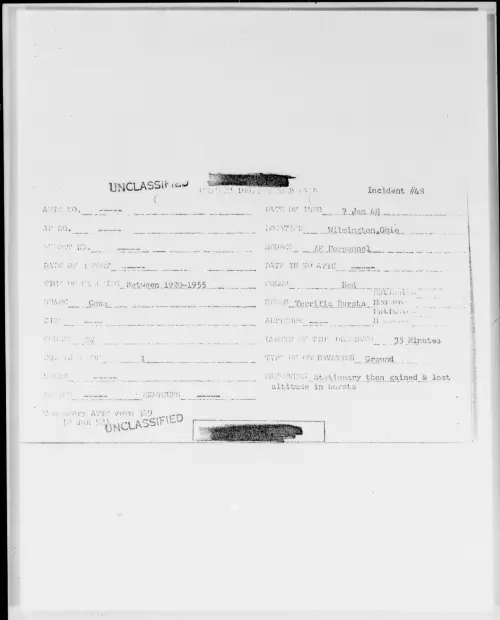 UNCLASSIFIED
Incident #48
ATIC NO. ----- DATE OF INFO 7 Jan 48
AF NO. ----- LOCATION Wilmington, Ohio
REPORT NO. ----- SOURCE AF Personnel
DATE OF REPORT ----- DATE IN TO ATIC -----
TIME OF SIGHTING Between 1920-1955 COLOR Red
SHAPE Cone SPEED Terrific Bursts
SIZE ----- ALTITUDE -----
COURSE SW LENGTH OF TIME OBSERVED 35 Minutes
NO. IN GROUP 1 TYPE OF OBSERVATION Ground
SOUND ----- MANEUVERS Stationary then gained & lost
altitude in bursts
PHOTOS ----- SKETCHES -----
Temporary ATIC Form 329
(2 Jan 52)
UNCLASSIFIED